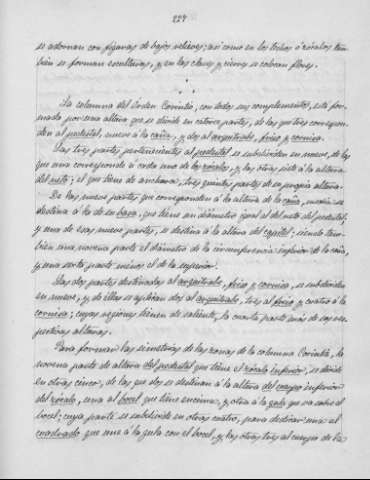 227
se adornan con figuras de bajos relieves; asi como en los lechos ó zócalos tam-
bién se forman esculturas, y en las claves y cierres se colocan flores.
La columna del Orden Corintio, con todos sus complementos, está for-
mada por una altura que se divide en catorce partes, de las que tres correspon-
den al pedestal, nueve á la caña, y dos al arquitrabe, friso y cornisa.
Las tres partes pertenecientes al pedestal se subdividen en nueve, de las
que una corresponde á cada uno de los zócalos, y las otras siete á la altura
del neto; el que tiene de anchura, tres quintas partes de su propia altura.
De las nueve partes que corresponden á la altura de la caña, media se
destina á la de su basa, que tiene un diámetro igual al del neto del pedestal;
y una de esas nueve partes, se destina á la altura del capitel; siendo tam-
bién una novena parte el diámetro de la circunferencia inferior de la caña,
y una sexta parte menos el de la superior.
Las dos partes destinadas al arquitrabe, friso y cornisa, se subdividen
en nueve, y de ellas se aplican dos al arquitrabe, tres al friso y cuatro á la
cornisa; cuyas regiones tienen de saliente, la cuarta parte más de sus res-
pectivas alturas.
Para formar las simetrías de las zonas de la columna Corintia, la
novena parte de altura del pedestal que tiene el zócalo inferior, se divide
en otras cinco, de las que dos se destinan á la altura del cuerpo inferior
del zócalo, una al bocel que tiene encima, y otra á la gola que va sobre el
bocel; cuya parte se subdivide en otras cuatro, para dedicar una al
cuadrado que une á la gola con el bocel, y las otras tres al cuerpo de la